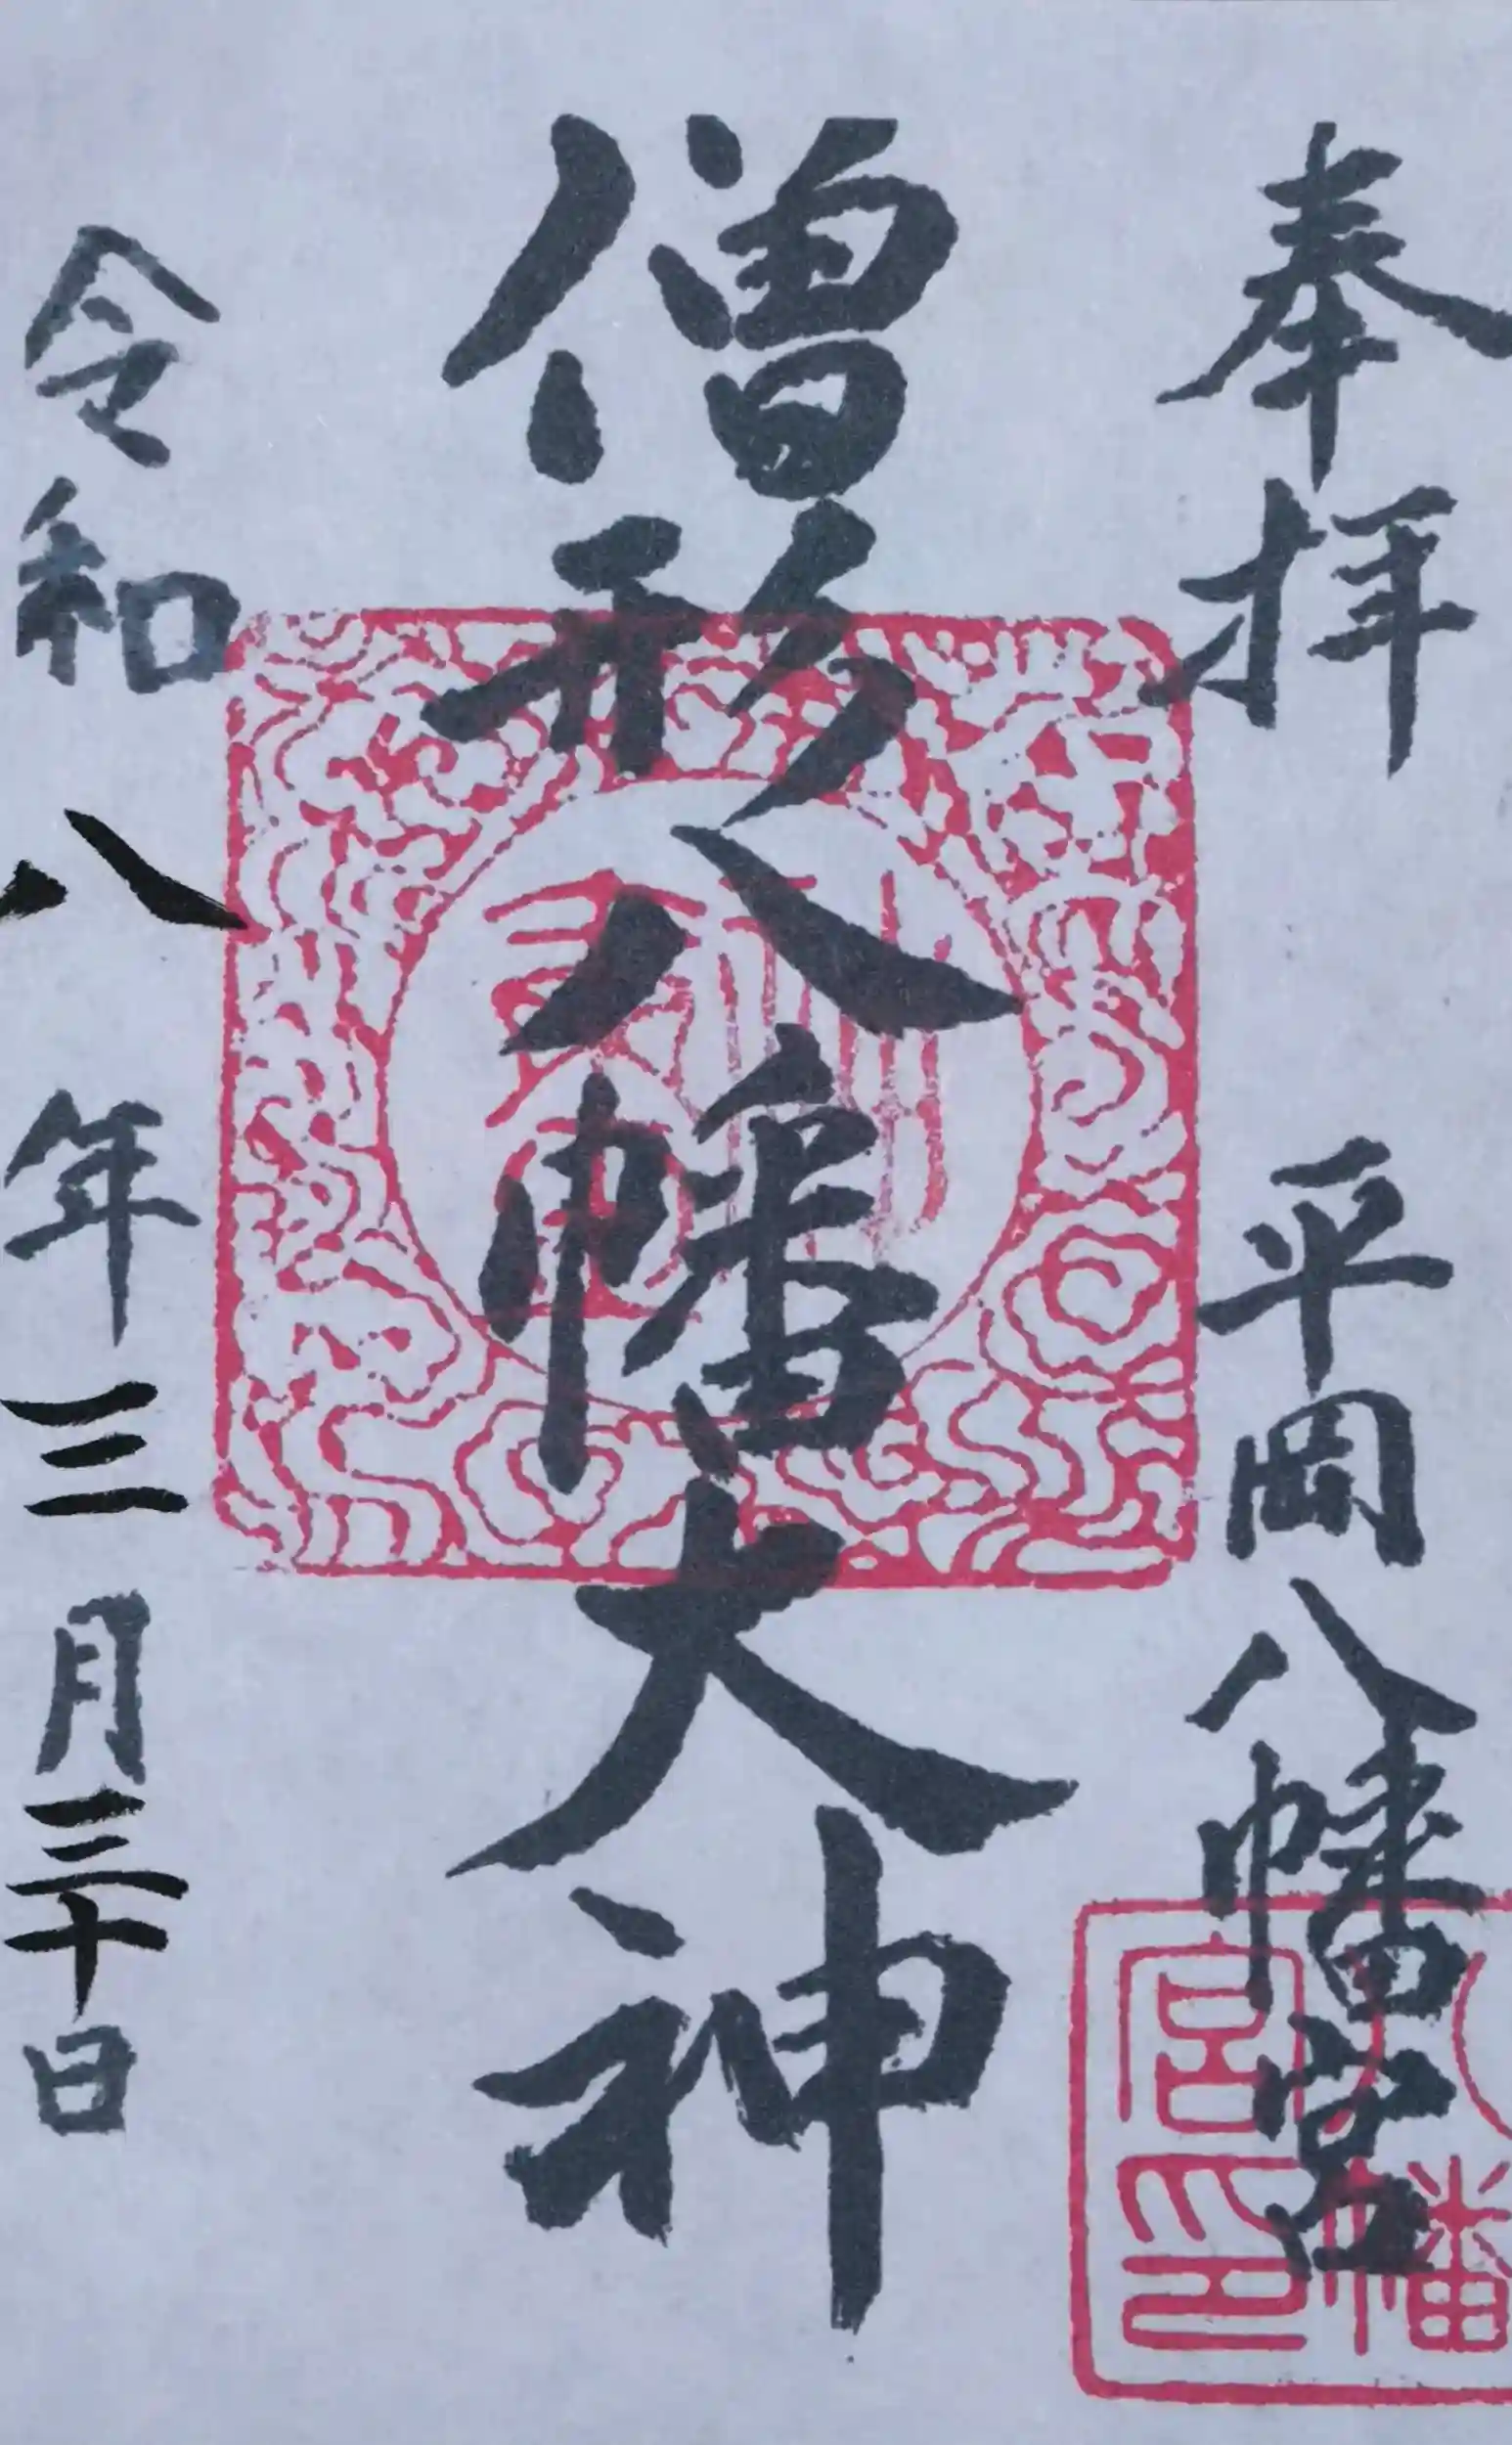 奉拝
平岡八幡宮
僧形八幡大神
令和八年三月三十日
八幡
宮印